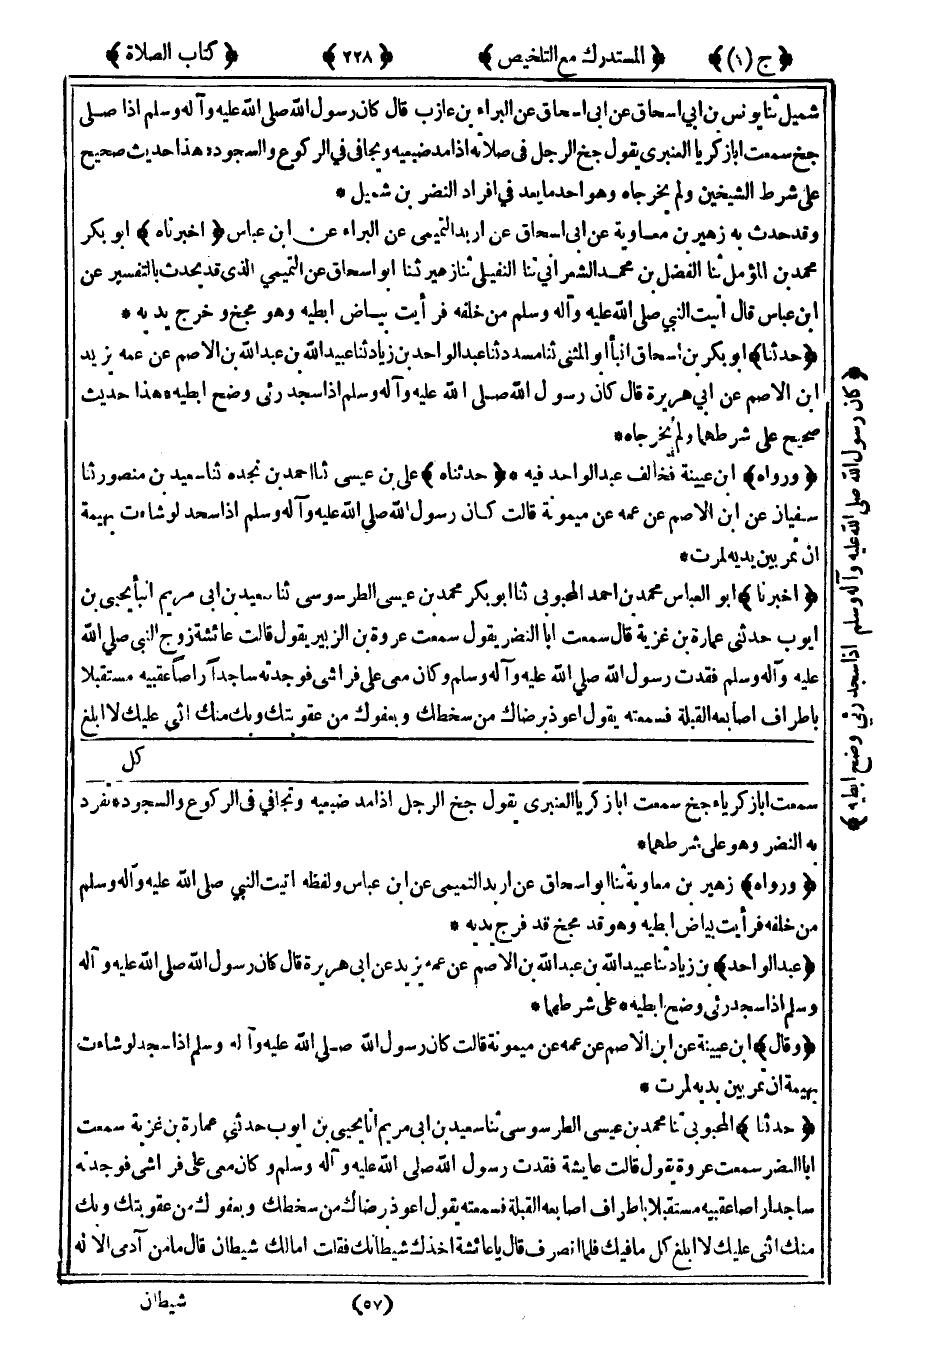 ﴿ ج (١) ﴾ ﴿ المستدرك مع التلخيص ﴾ ﴿ ٢٢٨ ﴾ ﴿ كتاب الصلاة ﴾
شميل ثنا يونس بن ابي اسحاق عن ابى اسحاق عن البراء بن عازب قال كان رسول الله صلى الله عليه وآله وسلم اذا صلى
جخ سمعت ابا زكريا العنبرى يقول جخ الرجل فى صلاته اذا مد ضبعيه ويجافى في الركوع والسجود* هذا حديث صحيح
على شرط الشيخين ولم يخرجاه وهو احد ما يعد في افراد النضر بن شميل *
وقد حدث به زهير بن معاوية عن ابى اسحاق عن اربد التميمى عن البراء عن ابن عباس ﴿ اخبرناه ﴾ ابو بكر
محمد بن المؤمل ثنا الفضل بن محمد الشعراني ثنا النفيلى ثنا زهير ثنا ابو اسحاق عن التميمي الذى قد يحدث بالتفسير عن
ابن عباس قال اتيت النبي صلى الله عليه وآله وسلم من خلفه فرأيت بياض ابطيه وهو مجخ وخرج يديه *
﴿ حدثنا ﴾ ابو بكر بن اسحاق انبأ ابو المثنى ثنا مسدد ثنا عبد الواحد بن زياد ثنا عبيد الله بن عبد الله بن الاصم عن عمه يزيد
ابن الاصم عن ابي هريرة قال كان رسول الله صلى الله عليه وآله وسلم اذا سجد رئى وضح ابطيه* هذا حديث
صحيح على شرطهما ولم يخرجاه*
﴿ ورواه ﴾ ابن عيينة فخالف عبد الواحد فيه *﴿ حدثناه ﴾ على بن عيسى ثنا احمد بن نجده ثنا سعيد بن منصور ثنا
سفيان عن ابن الاصم عن عمه عن ميمونة قالت كان رسول الله صلى الله عليه وآله وسلم اذا سجد لو شاءت بهيمة
ان تمر بين يديه لمرت*
﴿ اخبرنا ﴾ ابو العباس محمد بن احمد المحبوبى ثنا ابو بكر محمد بن عيسى الطرسوسى ثنا سعيد بن ابى مريم انبأ يحيى بن
ايوب حدثني عمارة بن غزية قال سمعت ابا النضر يقول سمعت عروة بن الزبير يقول قالت عائشة زوج النبي صلى الله
عليه وآله وسلم فقدت رسول الله صلى الله عليه وآله وسلم وكان معى على فراشى فوجدته ساجداً راصاً عقبيه مستقبلا
باطراف اصابعه القبلة فسمعته يقول اعوذ برضاك من سخطك وبعفوك من عقوبتك وبك منك اثنى عليك لا ابلغ
كل
سمعت ابا زكرياء جخ سمعت ابا زكريا العنبرى يقول جخ الرجل اذا مد ضبعيه وتجافى فى الركوع والسجود* تفرد
به النضر وهو على شرطهما*
﴿ ورواه ﴾ زهير بن معاوية ثنا ابو اسحاق عن اربد التميمى عن ابن عباس ولفظه اتيت النبي صلى الله عليه وآله وسلم
من خلفه فرأيت بياض ابطيه وهو قد مجخ قد فرج يديه *
﴿ عبد الواحد ﴾ بن زياد ثنا عبيد الله بن عبد الله بن الاصم عن عمه يزيد عن ابى هريرة قال كان رسول الله صلى الله عليه وآله
وسلم اذا سجد رئى وضح ابطيه* على شرطهما*
﴿ وقال ﴾ ابن عيينة عن ابن الاصم عن عمه عن ميمونة قالت كان رسول الله صلى الله عليه وآله وسلم اذا سجد لو شاءت
بهيمة ان تمر بين يديه لمرت *
﴿ حدثنا ﴾ المحبوبى ثنا محمد بن عيسى الطرسوسى ثنا سعيد بن ابى مريم انا يحيى بن ايوب حدثني عمارة بن غزية سمعت
ابا النضر سمعت عروة يقول قالت عايشة فقدت رسول الله صلى الله عليه وآله وسلم وكان معى على فراشى فوجدته
ساجدا راصا عقبيه مستقبلا باطراف اصابعه القبلة فسمعته يقول اعوذ برضاك من سخطك وبعفوك من عقوبتك وبك
منك اثنى عليك لا ابلغ كل ما فيك فلما انصرف قال يا عائشة اخذك شيطانك فقلت اما لك شيطان قال ما من آدمى الا له
(٥٧) شيطان
﴿ كان رسول الله صلى الله عليه وآله وسلم اذا سجد رئي وضح ابطيه ﴾